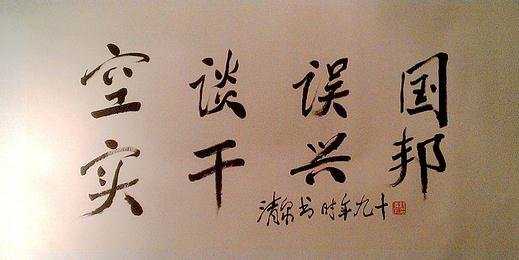 空谈误国
实干兴邦
清泉书时年九十